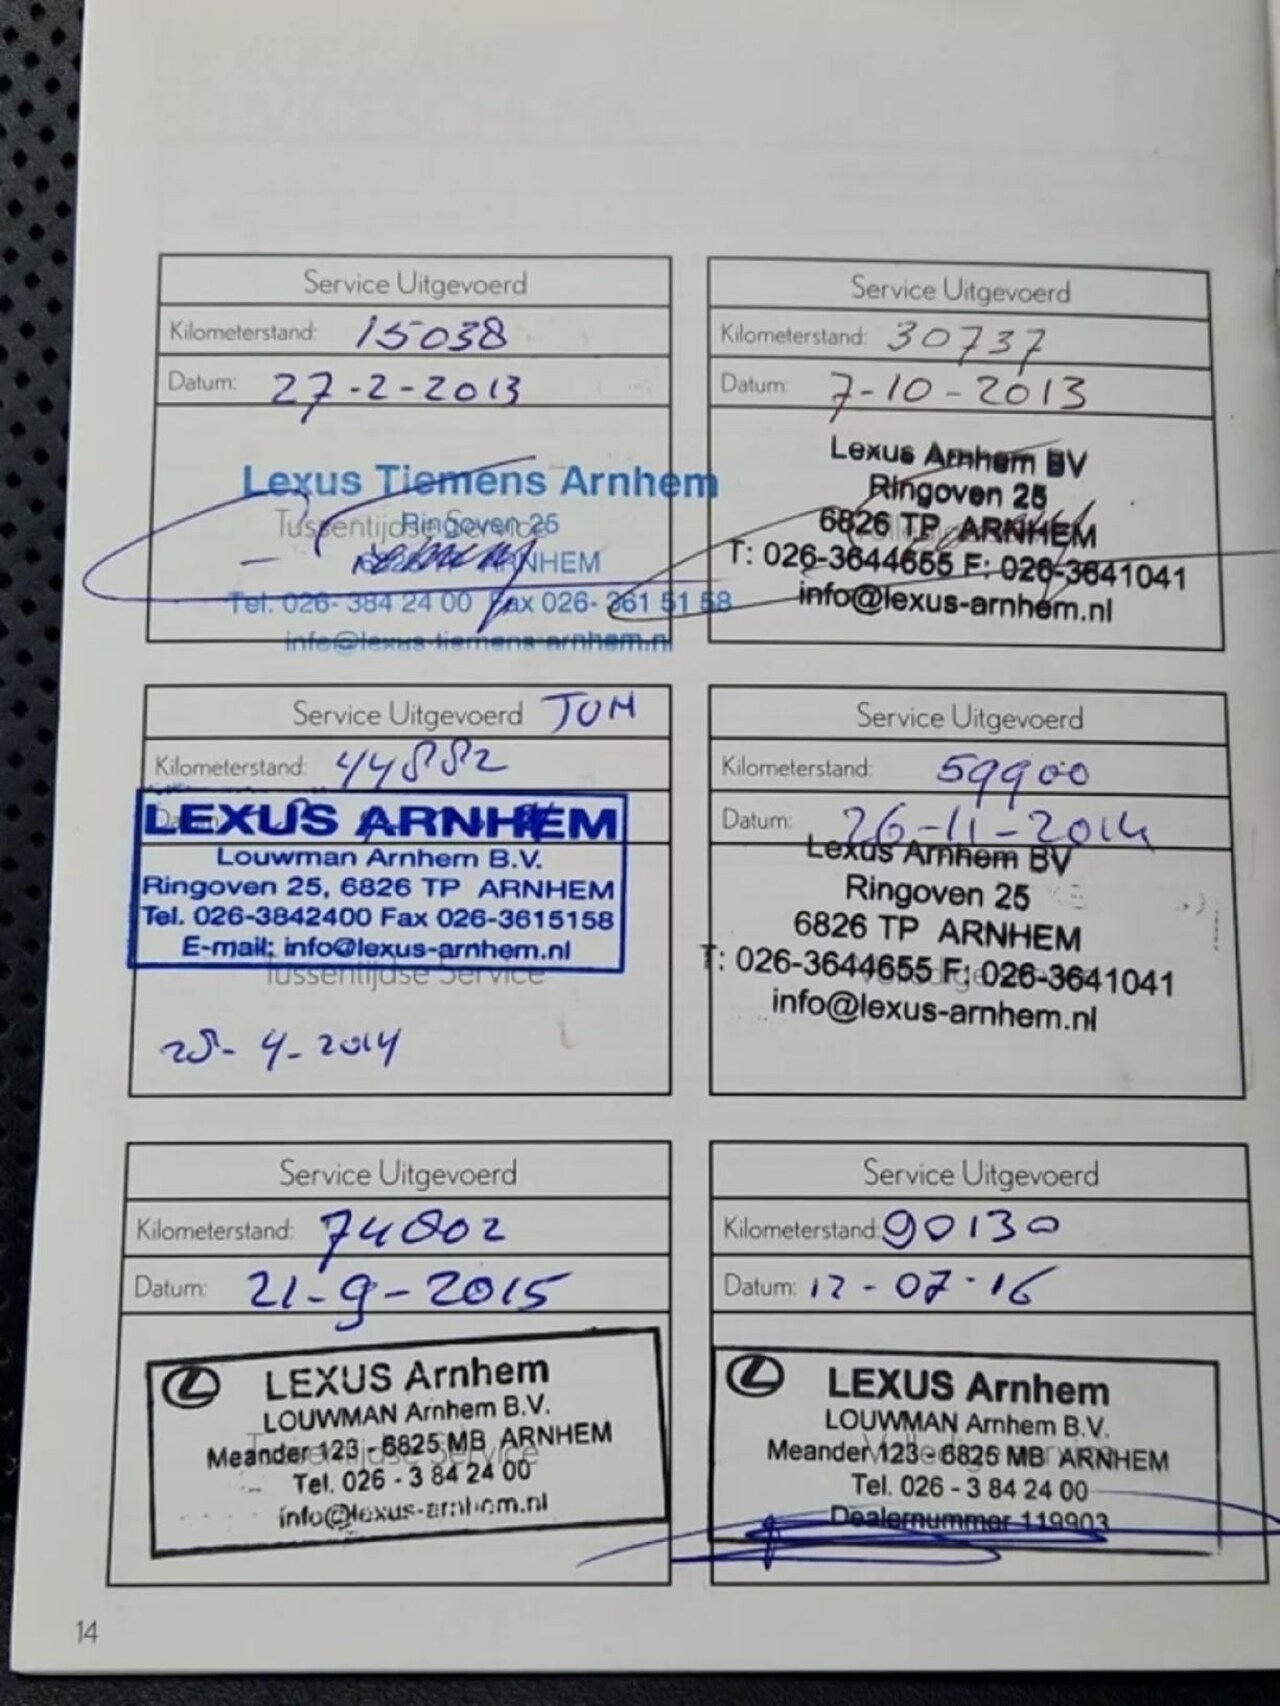 Service Uitgevoerd
Kilometerstand: 15038
Datum: 27-2-2013
Lexus Tiemens Arnhem
Tussentijdse Service
Ringoven 25
6826 TP ARNHEM
Tel. 026- 384 24 00 Fax 026- 361 51 58
info@lexus-tiemens-arnhem.nl
Service Uitgevoerd
Kilometerstand: 30737
Datum: 7-10-2013
Lexus Arnhem BV
Ringoven 25
6826 TP ARNHEM
T: 026-3644655 F: 026-3641041
info@lexus-arnhem.nl
Service Uitgevoerd TOM
Kilometerstand: 44882
LEXUS ARNHEM
Louwman Arnhem B.V.
Ringoven 25, 6826 TP ARNHEM
Tel. 026-3842400 Fax 026-3615158
E-mail: info@lexus-arnhem.nl
Tussentijdse Service
28-4-2014
Service Uitgevoerd
Kilometerstand: 59900
Datum: 26-11-2014
Lexus Arnhem BV
Ringoven 25
6826 TP ARNHEM
T: 026-3644655 F: 026-3641041
info@lexus-arnhem.nl
Service Uitgevoerd
Kilometerstand: 74802
Datum: 21-9-2015
LEXUS Arnhem
LOUWMAN Arnhem B.V.
Meander 123 - 6825 MB ARNHEM
Tel. 026 - 3 84 24 00
info@lexus-arnhem.nl
Service Uitgevoerd
Kilometerstand: 90130
Datum: 12-07-16
LEXUS Arnhem
LOUWMAN Arnhem B.V.
Meander 123 - 6825 MB ARNHEM
Tel. 026 - 3 84 24 00
Dealernummer 119903
14